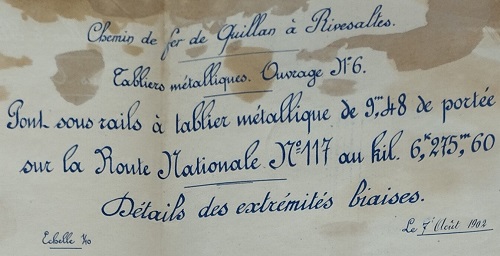 Chemin de fer de Quillan à Rivesaltes.
Tabliers métalliques. Ouvrage N° 6.
Pont sous rails à tablier métallique de 9,ᵐ48 de portée
sur la Route Nationale N° 117 au kil. 6,ᵏ275,ᵐ60
Détails des extrémités biaises.
Echelle 1/10
Le 7 Août 1902